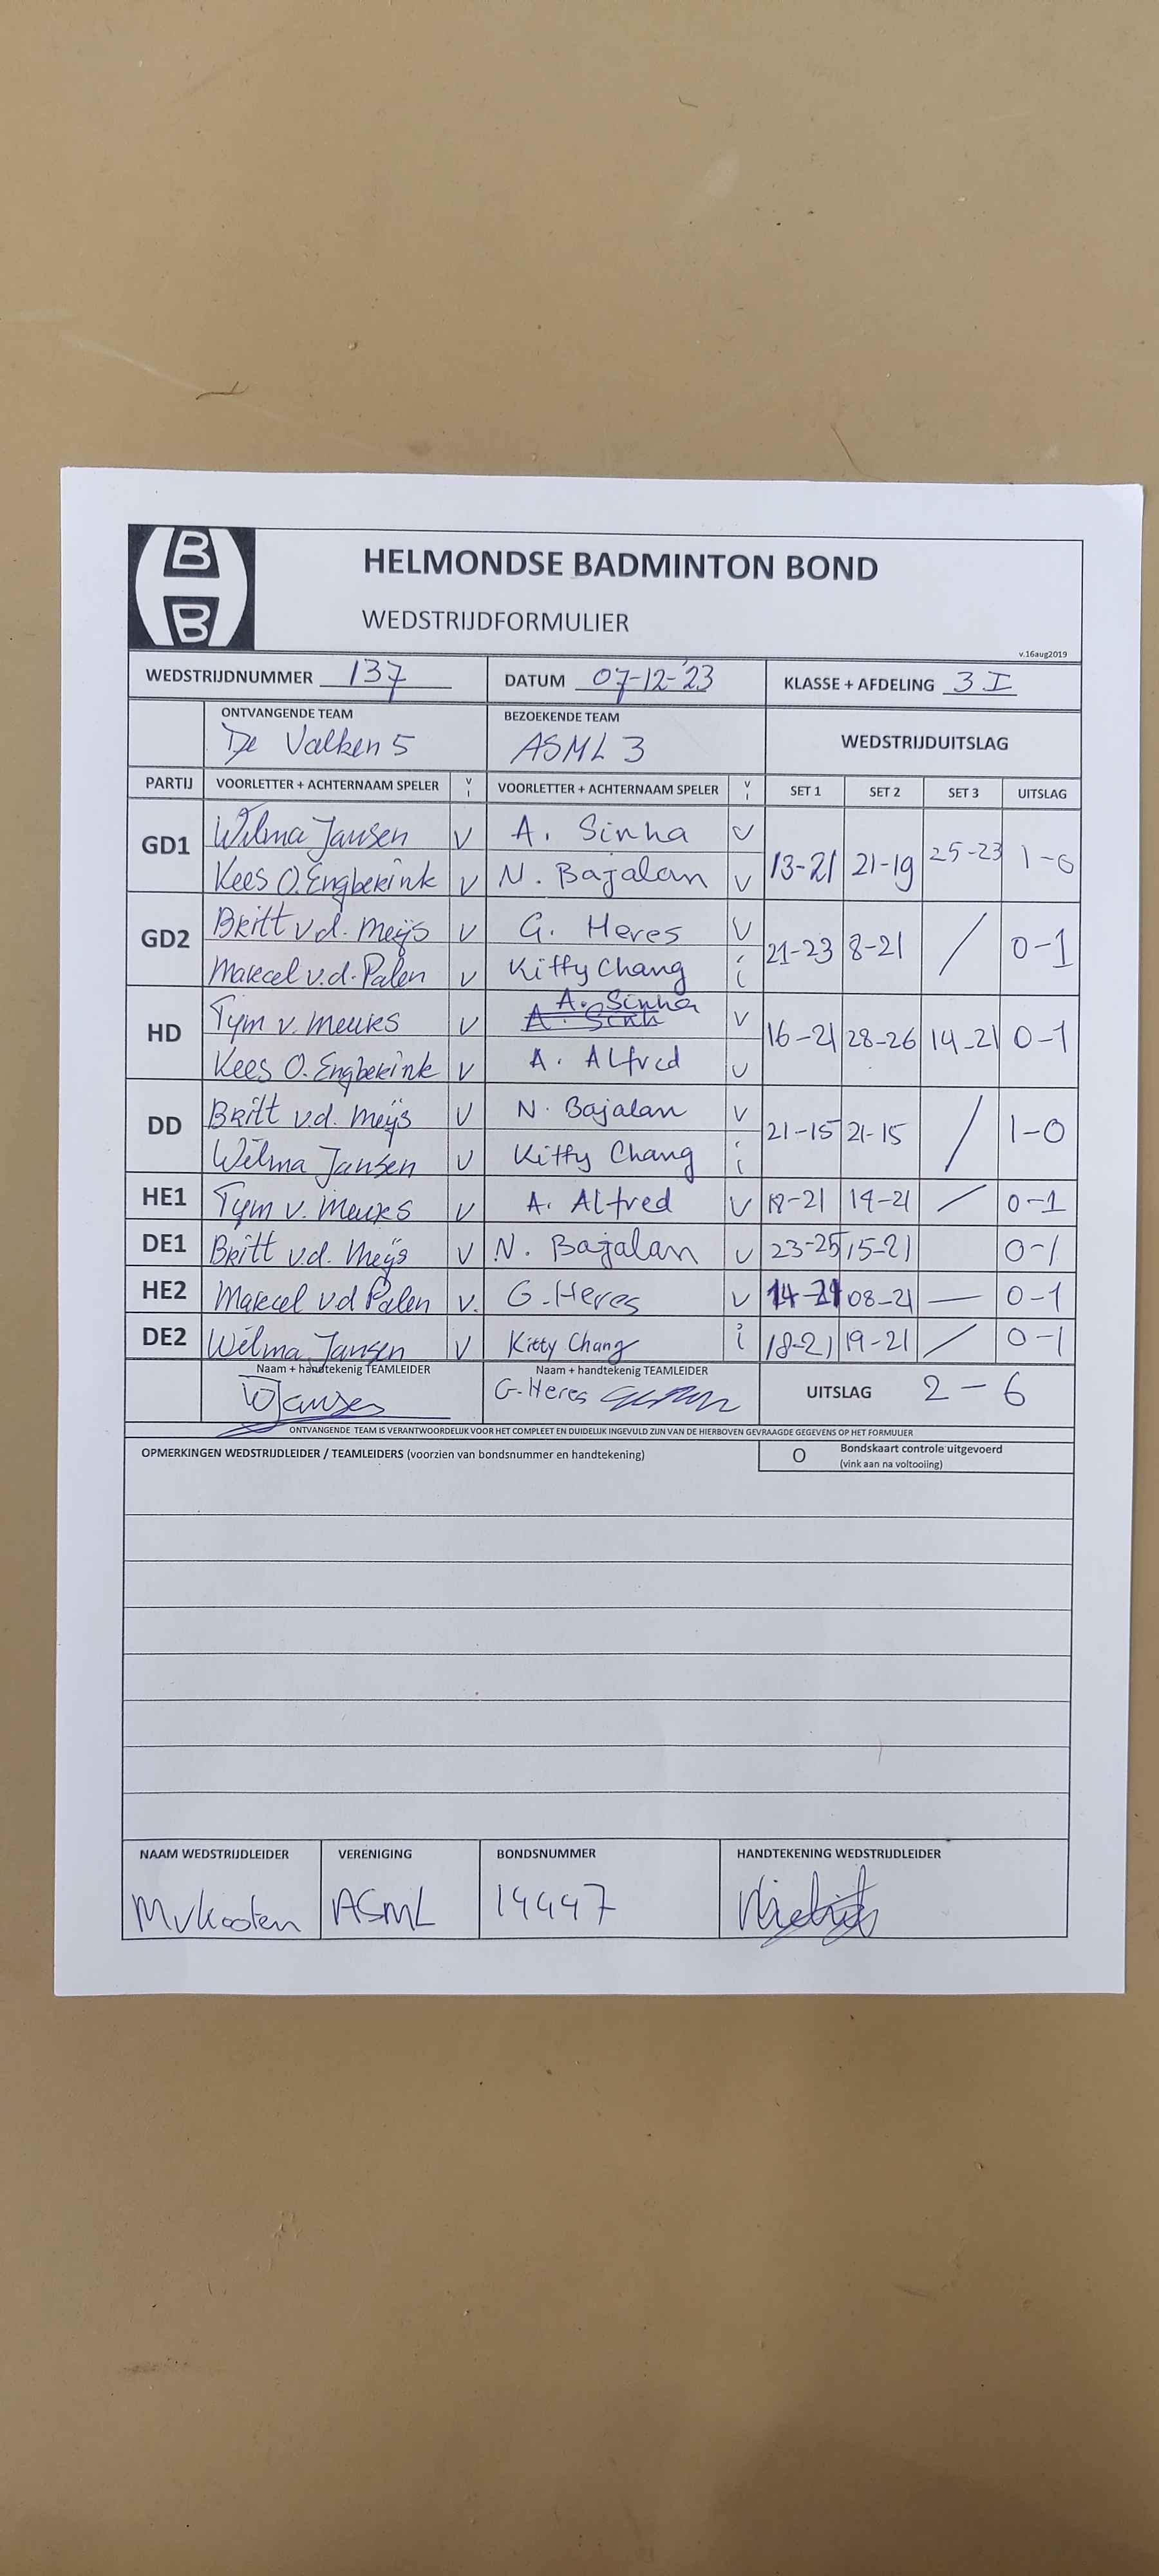 B
B
HELMONDSE BADMINTON BOND
WEDSTRIJDFORMULIER
v.16aug2019
WEDSTRIJDNUMMER 137 DATUM 07-12-'23 KLASSE + AFDELING 3 I
ONTVANGENDE TEAM BEZOEKENDE TEAM
De Valken 5 ASML 3 WEDSTRIJDUITSLAG
PARTIJ VOORLETTER + ACHTERNAAM SPELER V I VOORLETTER + ACHTERNAAM SPELER V I SET 1 SET 2 SET 3 UITSLAG
GD1 Wilma Jansen V A. Sinha V 13-21 21-19 25-23 1-0
Kees O. Engberink V N. Bajalan V
GD2 Britt v.d. Meijs V G. Heres V 21-23 8-21 / 0-1
Marcel v.d. Palen V Kitty Chang i
HD Tym v. Meurs V A. Sinha V 16-21 28-26 14-21 0-1
A. Sinh
Kees O. Engberink V A. Alfred V
DD Britt v.d. Meijs V N. Bajalan V 21-15 21-15 / 1-0
Wilma Jansen V Kitty Chang i
HE1 Tym v. Meurs V A. Alfred V 18-21 14-21 / 0-1
DE1 Britt v.d. Meijs V N. Bajalan V 23-25 15-21 0-1
HE2 Marcel vd Palen V. G. Heres V 14-21 08-21 — 0-1
DE2 Wilma Jansen V Kitty Chang i 18-21 19-21 / 0-1
Naam + handtekenig TEAMLEIDER Naam + handtekenig TEAMLEIDER
WJansen G. Heres UITSLAG 2-6
ONTVANGENDE TEAM IS VERANTWOORDELIJK VOOR HET COMPLEET EN DUIDELIJK INGEVULD ZIJN VAN DE HIERBOVEN GEVRAAGDE GEGEVENS OP HET FORMULIER
OPMERKINGEN WEDSTRIJDLEIDER / TEAMLEIDERS (voorzien van bondsnummer en handtekening) O Bondskaart controle uitgevoerd
(vink aan na voltooiing)
NAAM WEDSTRIJDLEIDER VERENIGING BONDSNUMMER HANDTEKENING WEDSTRIJDLEIDER
MvKooten ASML 14447